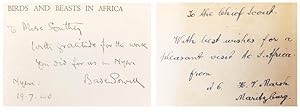 BIRDS AND BEASTS IN AFRICA
To Miss Southey
with gratitude for the work
you did for us in Nyeri
Baden Powell
Nyeri
19.7.40
To the Chief Scout.
With best wishes for a
pleasant visit to S. Africa
from
H. V. Marsh
Maritzburg.